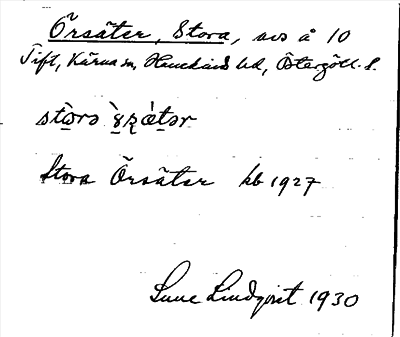 Örsäter, Stora, avs å 10
Tift, Kärna sn, Hanekinds hd, Östergötl. l.
Stora Örsäter kb 1927
Sune Lindqvist 1930